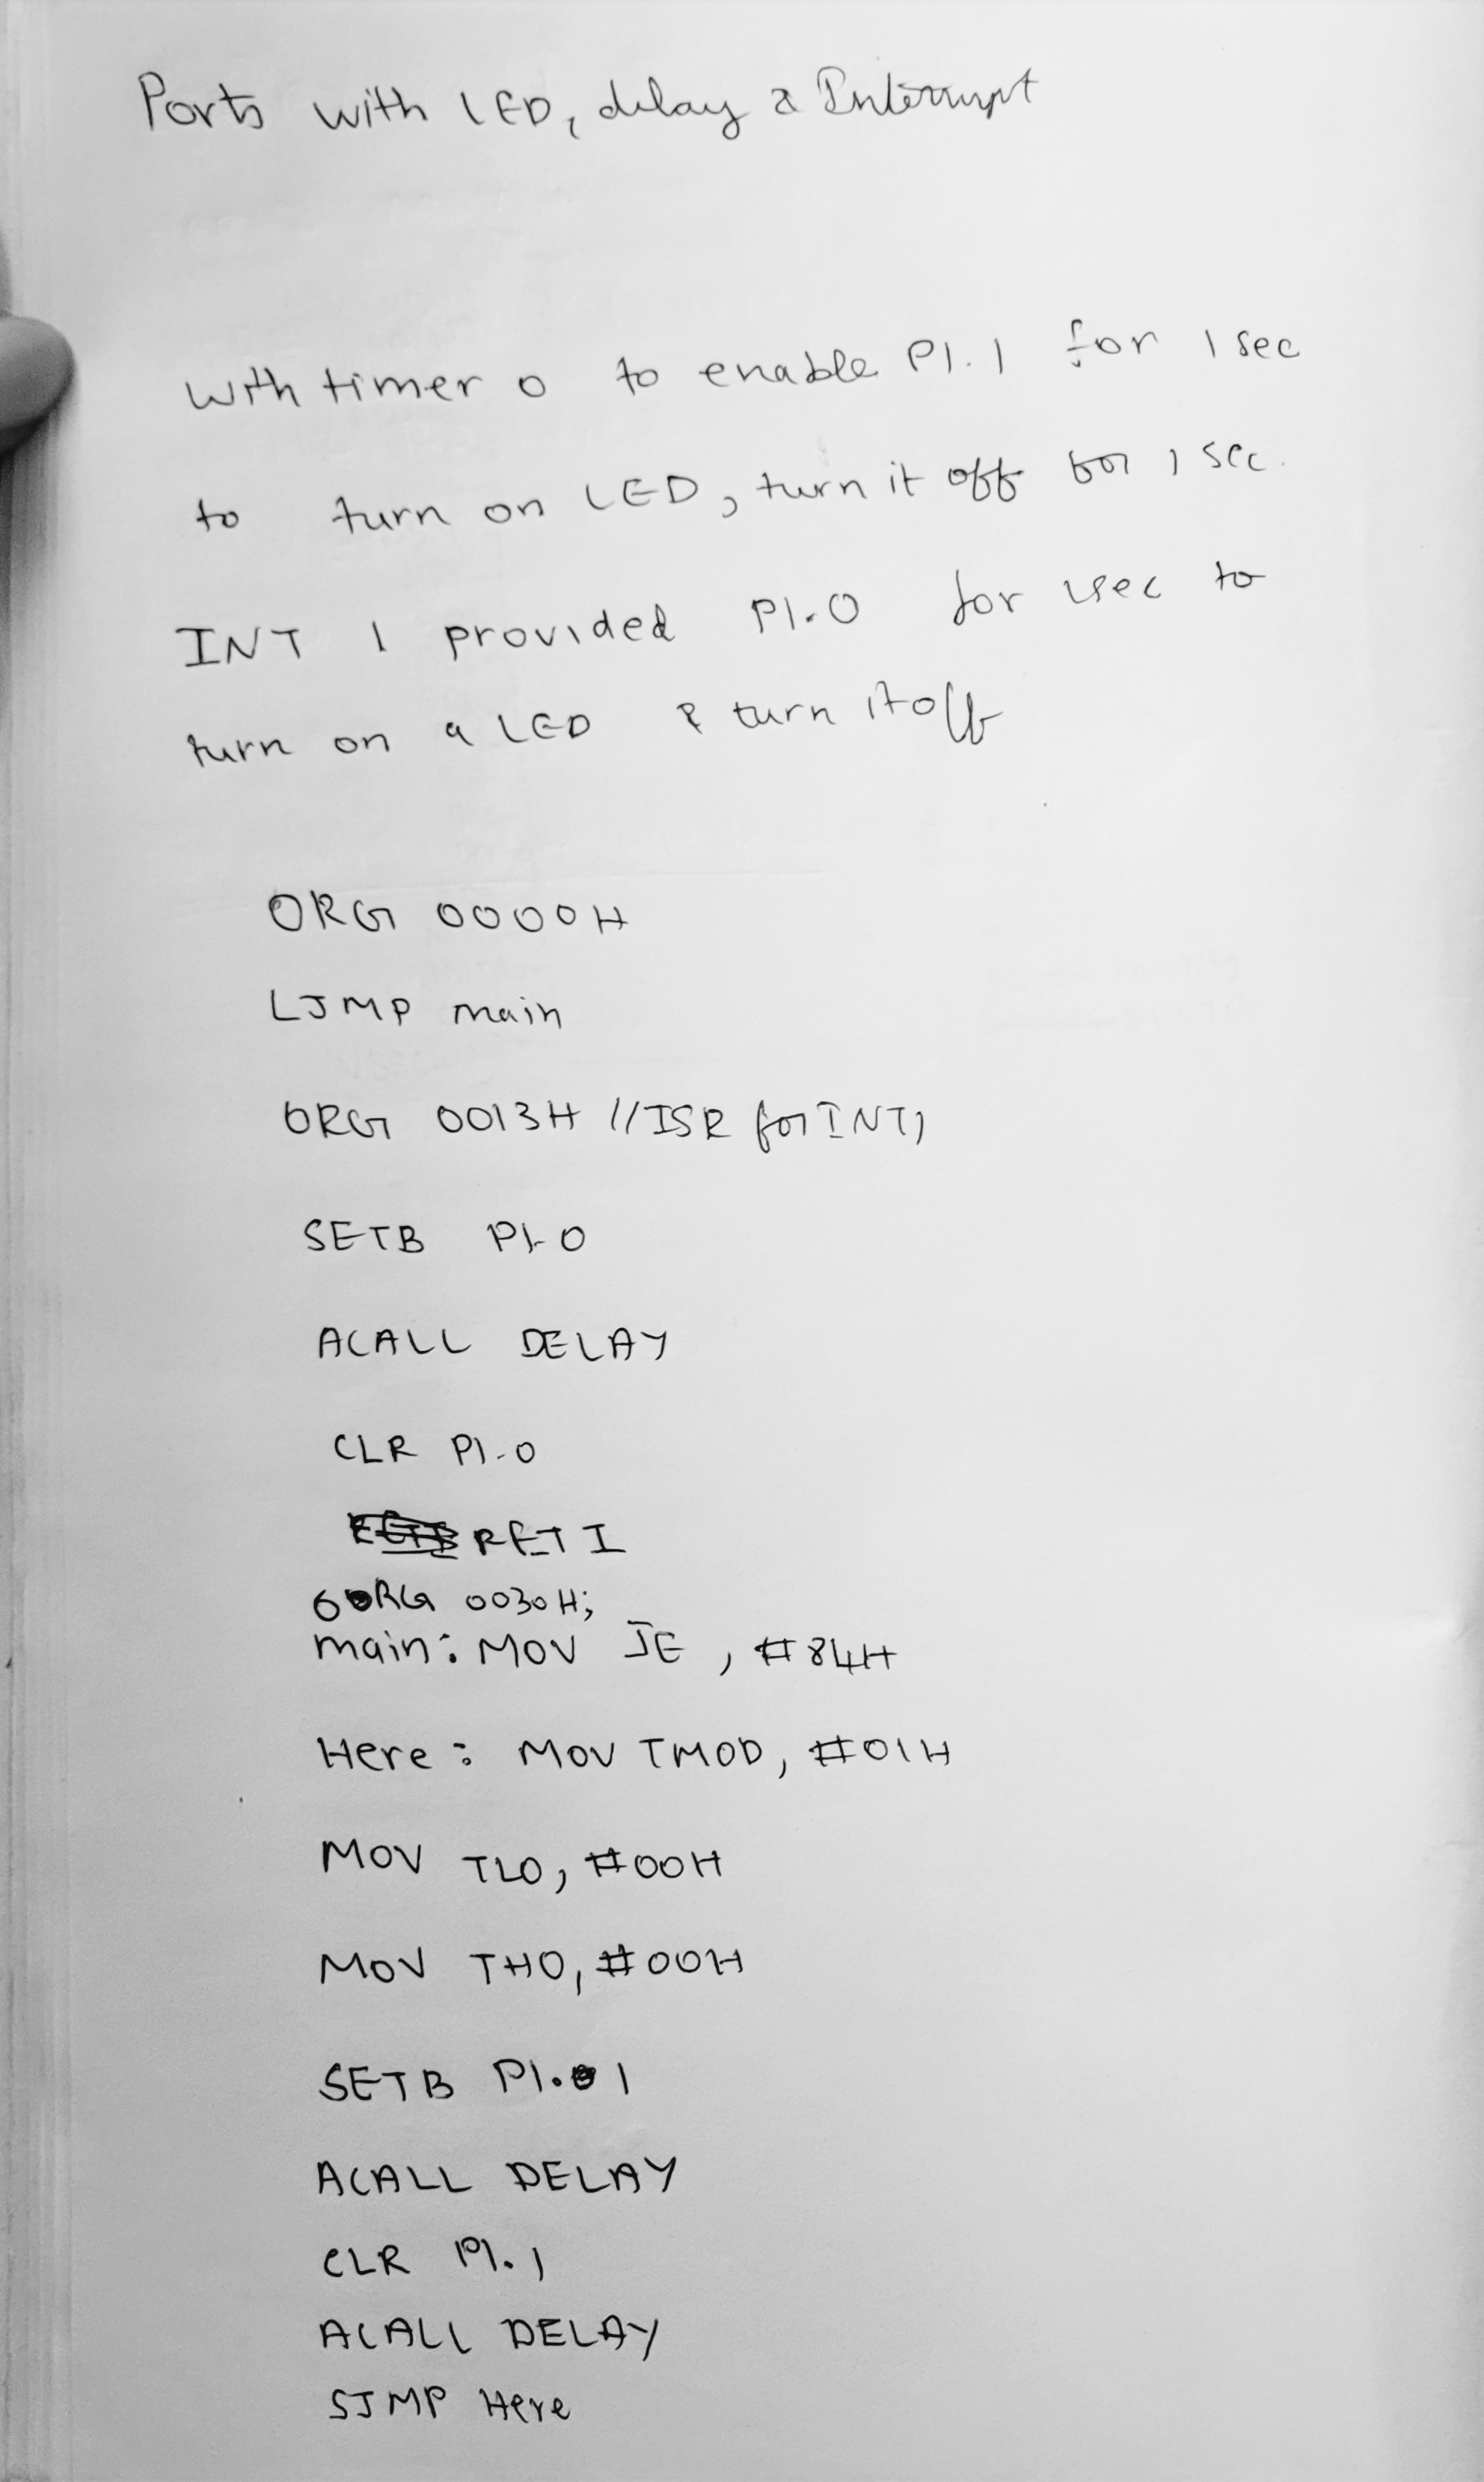 Ports with LED, delay & Interrupt
With timer 0 to enable P1.1 for 1 sec
to turn on LED, turn it off for 1 sec.
INT 1 provided P1.0 for 1sec to
turn on a LED & turn it off
ORG 0000H
LJMP main
ORG 0013H //ISR for INT1
SETB P1.0
ACALL DELAY
CLR P1.0
RETI
ORG 0030H;
main: MOV IE, #84H
Here: MOV TMOD, #01H
MOV TL0, #00H
MOV TH0, #00H
SETB P1.1
ACALL DELAY
CLR P1.1
ACALL DELAY
SJMP Here